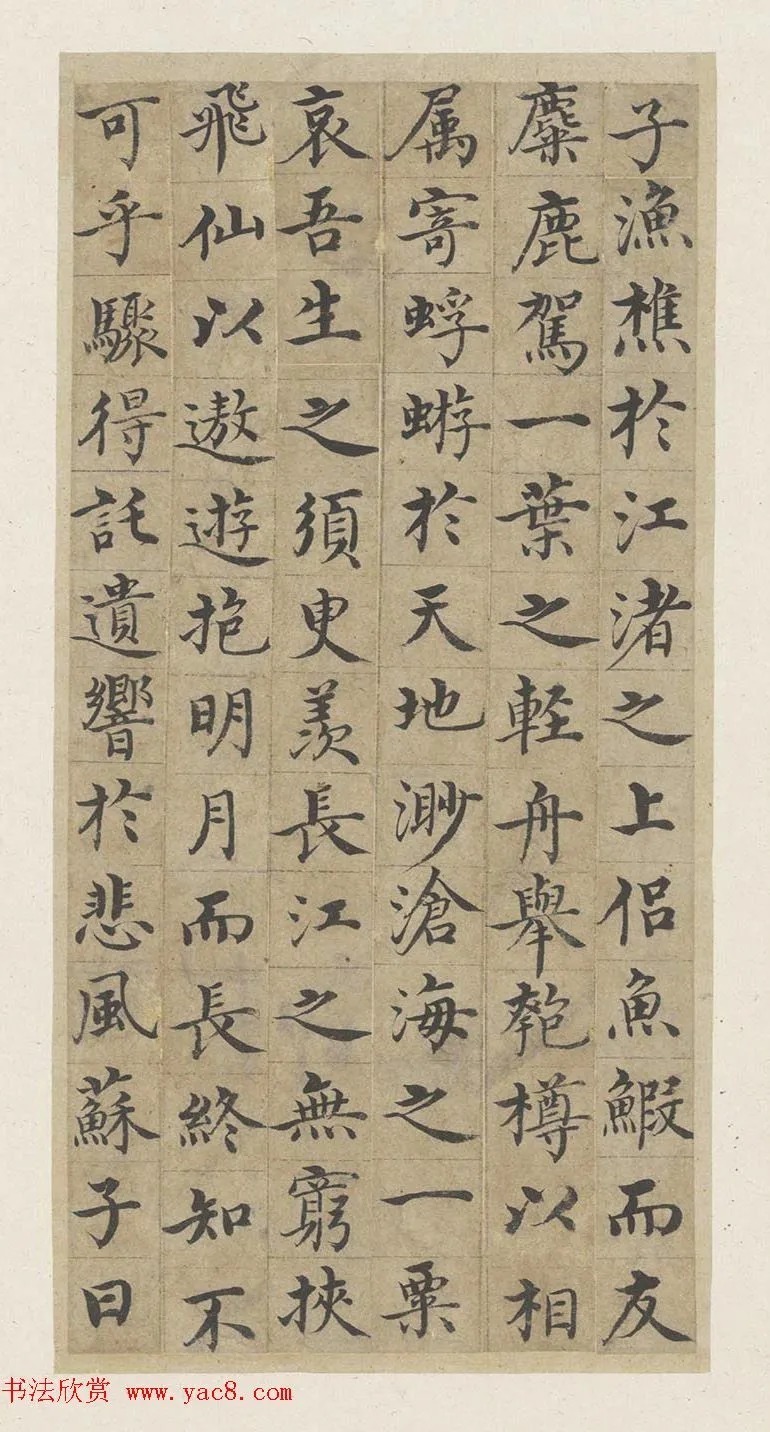 子漁樵於江渚之上侣魚鰕而友
麋鹿駕一葉之輕舟舉匏樽以相
属寄蜉蝣於天地渺滄海之一粟
哀吾生之須臾羨長江之無窮挾
飛仙以遨遊抱明月而長終知不
可乎驟得託遺響於悲風蘇子曰
书法欣赏 www.yac8.com